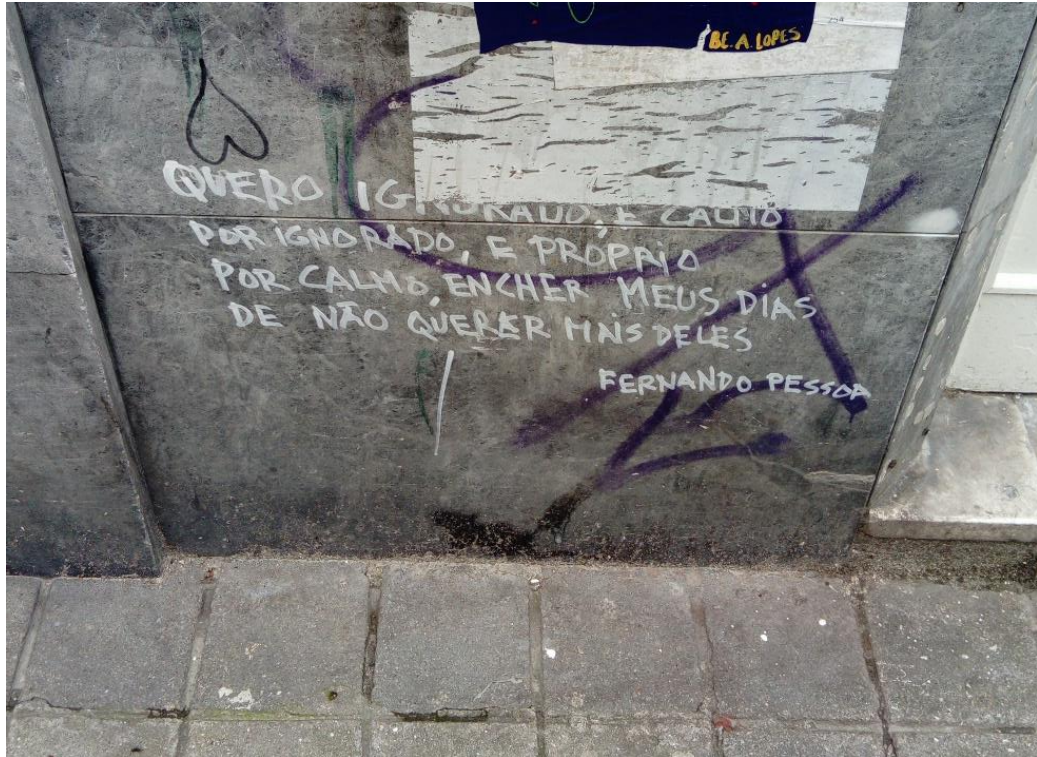 BE. A. LOPES
QUERO IGNORADO, E CALMO
POR IGNORADO, E PRÓPRIO
POR CALMO, ENCHER MEUS DIAS
DE NÃO QUERER MAIS DELES
FERNANDO PESSOA